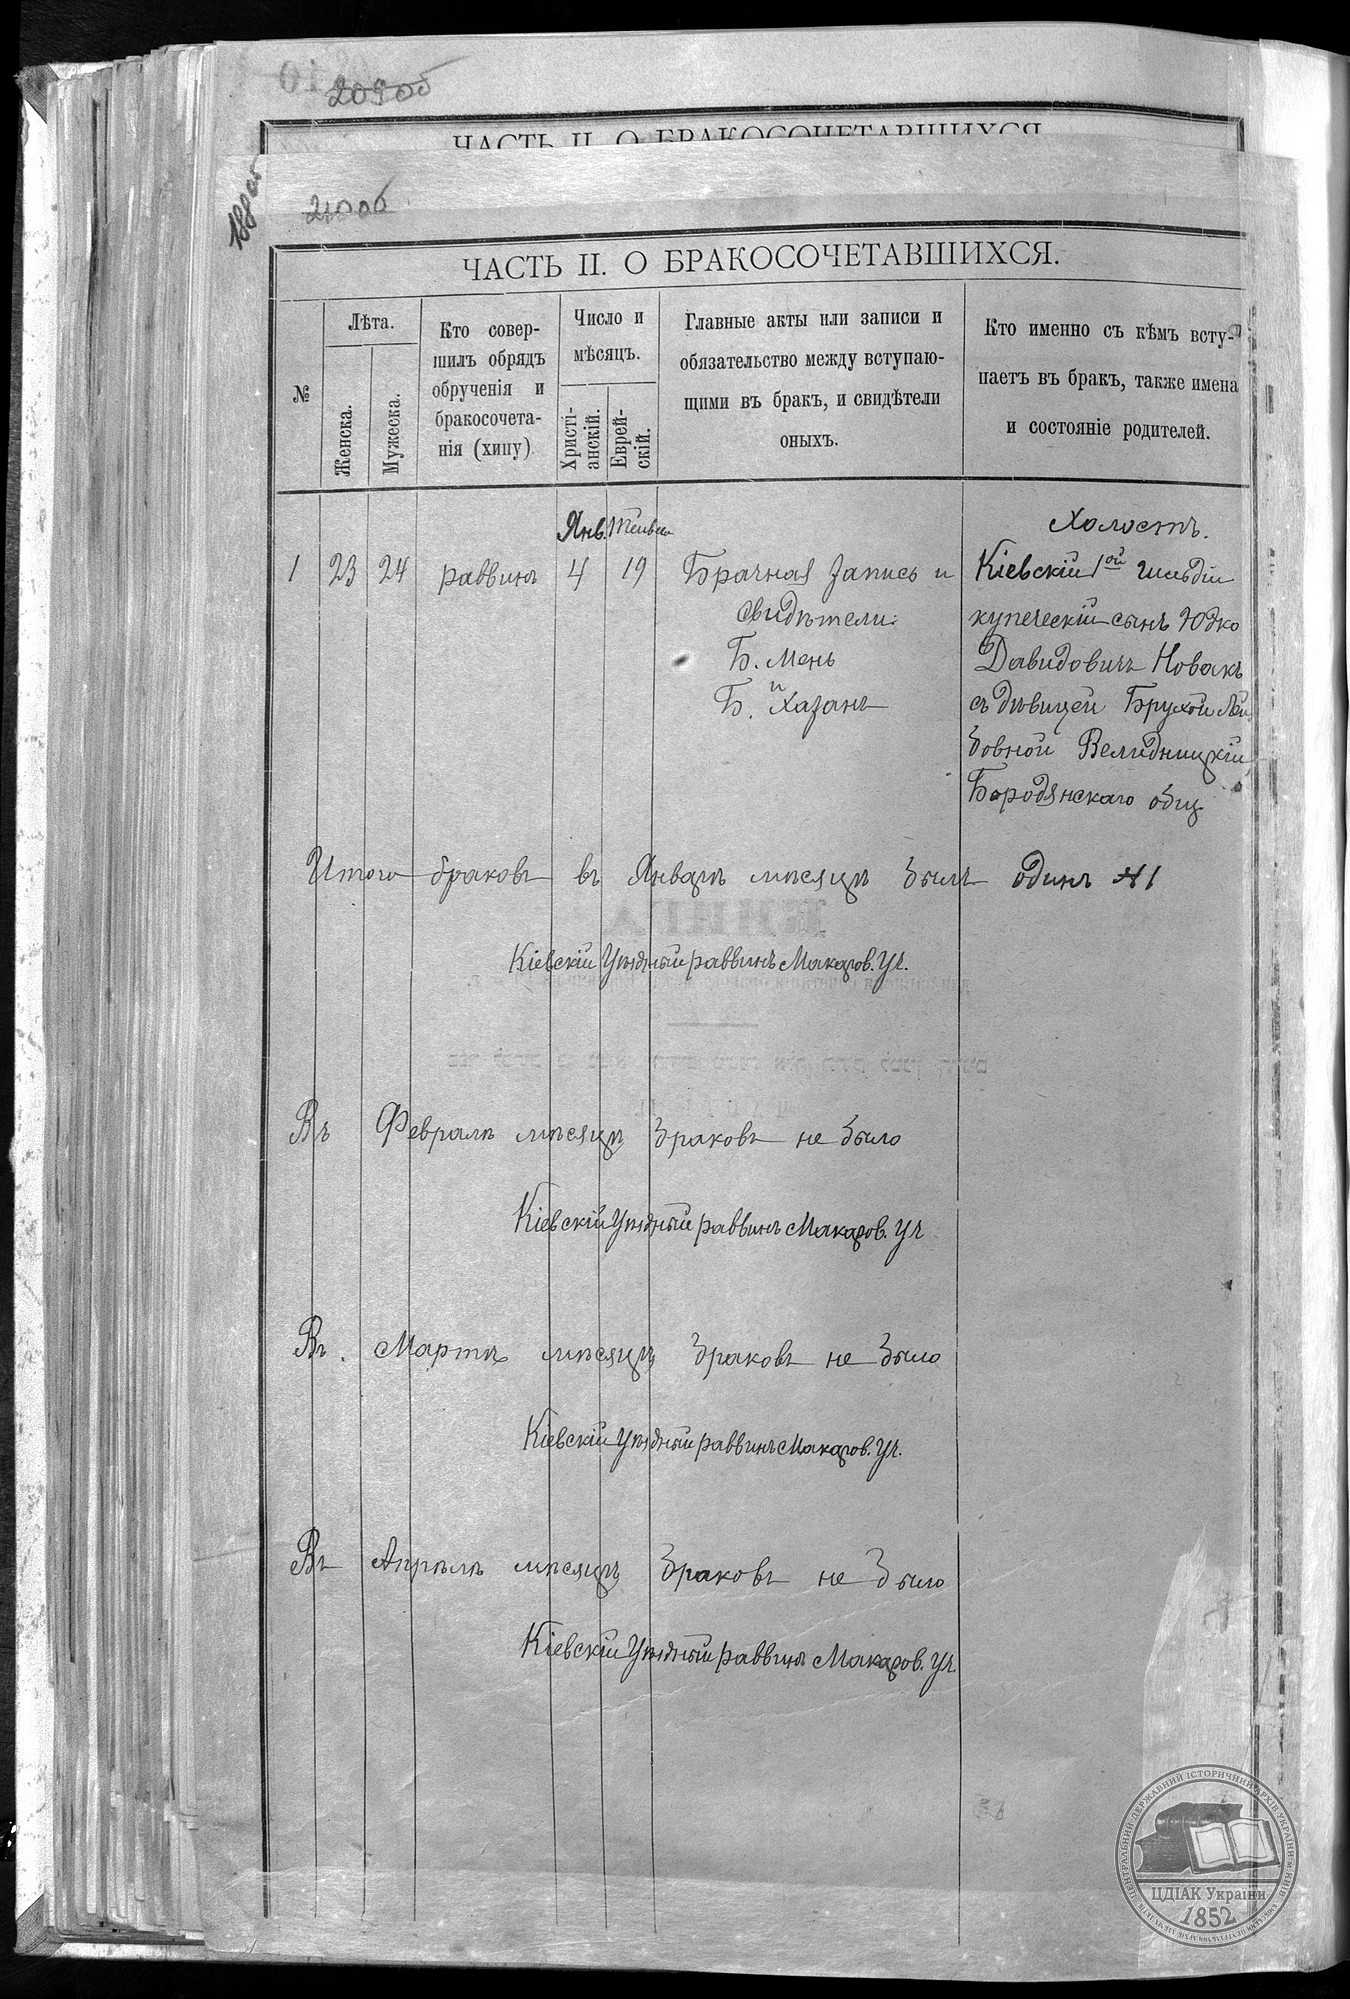 209об
ЧАСТЬ II. О БРАКОСОЧЕТАВШИХСЯ
188об
210об
ЧАСТЬ II. О БРАКОСОЧЕТАВШИХСЯ.
№
Лѣта.
Женска.
Мужеска.
Кто совер-
шилъ обрядъ
обрученія и
бракосочета-
нія (хипу)
Число и
мѣсяцъ.
Христі-
анскій.
Еврей-
скій.
Главные акты или записи и
обязательство между вступаю-
щими въ бракъ, и свидѣтели
оныхъ.
Кто именно съ кѣмъ всту-
паетъ въ бракъ, также имена
и состояніе родителей.
Янв. Тейвса
Холостъ.
1 23 24 раввинъ 4 19 Брачная запись и Кіевскій 1ой гильдіи
свидѣтели: купеческій сынъ Юдко
Б. Мень Давидовичъ Новакъ
и
Б. Хазанъ съ дѣвицей Брухой Лей
бовной Велидницкій
Бородянскаго общ
Итого браковъ въ Январѣ мѣсяцѣ былъ одинъ №1
Кіевскій Уѣздный раввинъ Макаров. Уч.
Въ Февралѣ мѣсяцѣ браковъ не было
Кіевскій Уѣздный раввинъ Макаров. Уч
Въ Мартѣ мѣсяцѣ браковъ не было
Кіевскій Уѣздный раввинъ Макаров. Уч.
Въ Апрѣлѣ мѣсяцѣ браковъ не было
Кіевскій Уѣздный раввинъ Макаров. Уч.
ЦЕНТРАЛЬНИЙ ДЕРЖАВНИЙ ІСТОРИЧНИЙ АРХІВ УКРАЇНИ м. КИЇВ
ЦДІАК України
1852